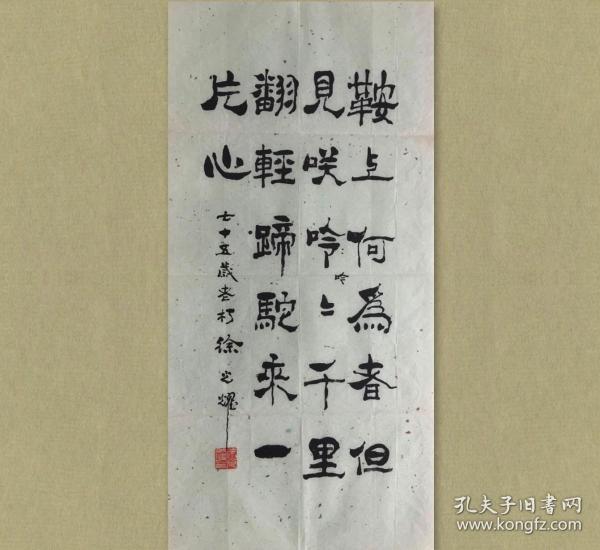 鞍上何為者但
見咲吟〻千里
吟
翻輕蹄駝來一
片心
七十五歲老朽徐光耀
孔夫子旧书网
www.kongfz.com